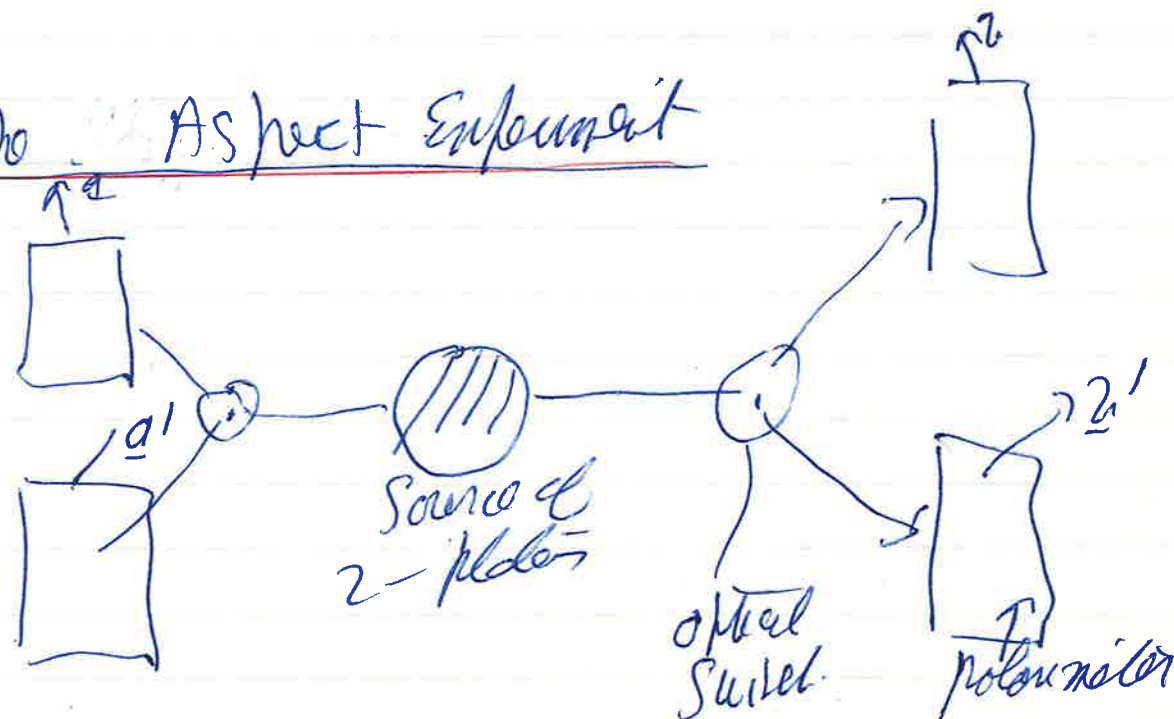 The Aspect Experiment
a
b
a'
b'
Source of
2-photons
optical
switch.
polarimeter